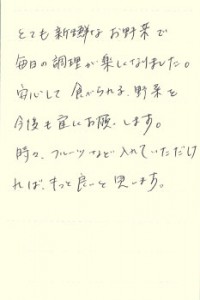 とても新鮮なお野菜で
毎日の調理が楽しくなりました。
安心して食べられる野菜を
今後も宜にお願いします。
時々、フルーツなど入れていただけ
れば、きっと良いと思います。